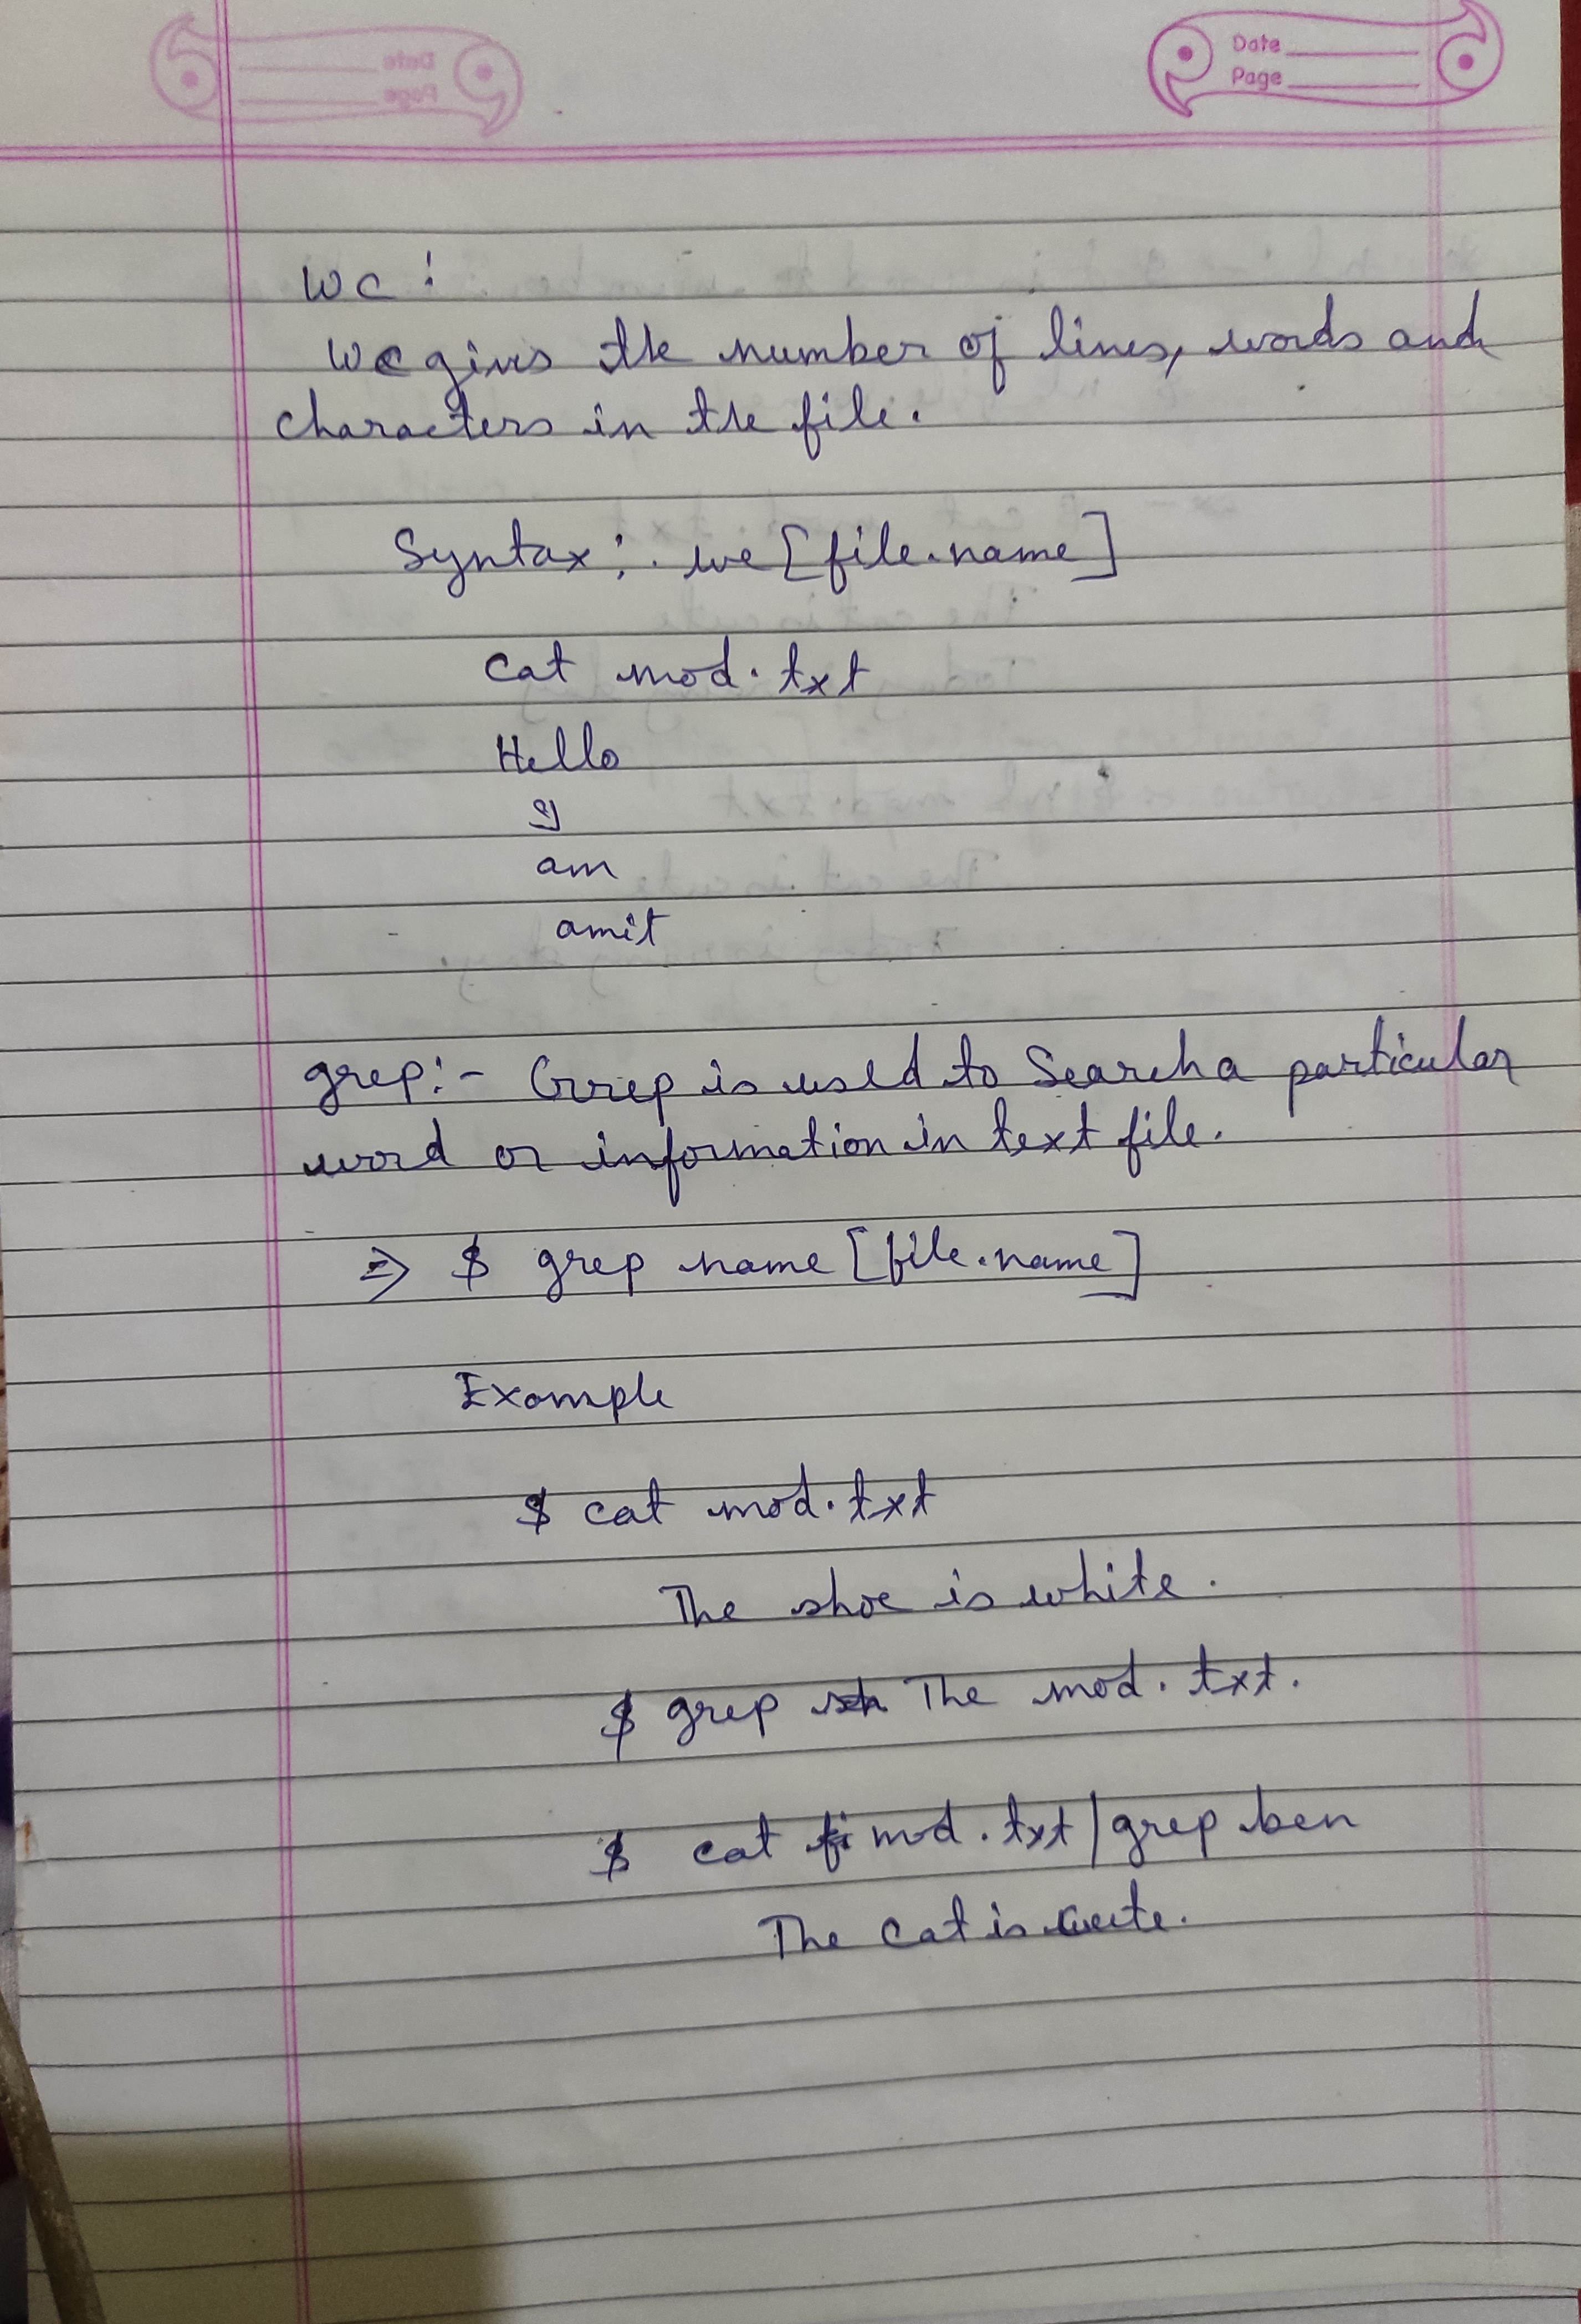 Date
Page
wc :
wc gives the number of lines, words and
characters in the file.
Syntax : . wc [file.name]
cat mod.txt
Hello
I
am
amit
grep :- Grep is used to Search a particular
word or information in text file.
⇒ $ grep name [file.name]
Example
$ cat mod.txt
The shoe is white.
$ grep The mod.txt.
$ cat mod.txt | grep ben
The cat is cute.